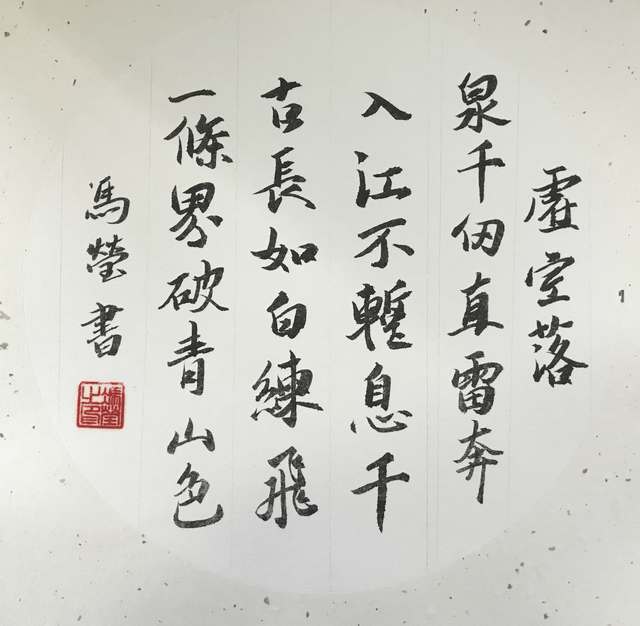 虛空落
泉千仞直雷奔
入江不暫息千
古長如白練飛
一條界破青山色
馮瑩書